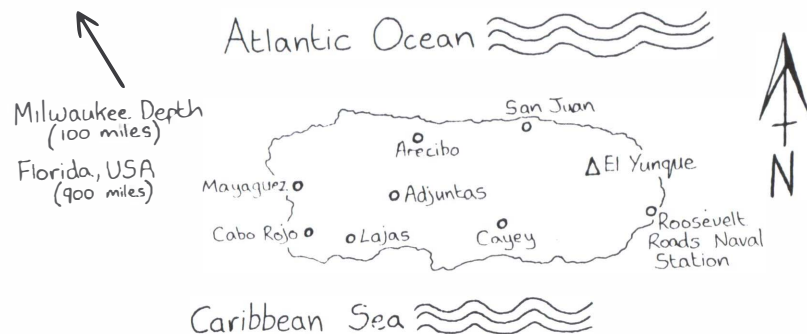 Atlantic Ocean
Milwaukee Depth
(100 miles)
Florida, USA
(900 miles)
San Juan
Arecibo
El Yunque
N
Mayaguez
Adjuntas
Cabo Rojo
Lajas
Cayey
Roosevelt
Roads Naval
Station
Caribbean Sea